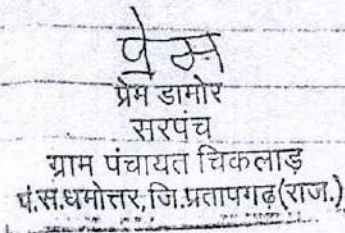 प्रेम
प्रेम डामोर
सरपंच
ग्राम पंचायत चिकलाड़
पं.स.धमोत्तर,जि.प्रतापगढ़(राज.)